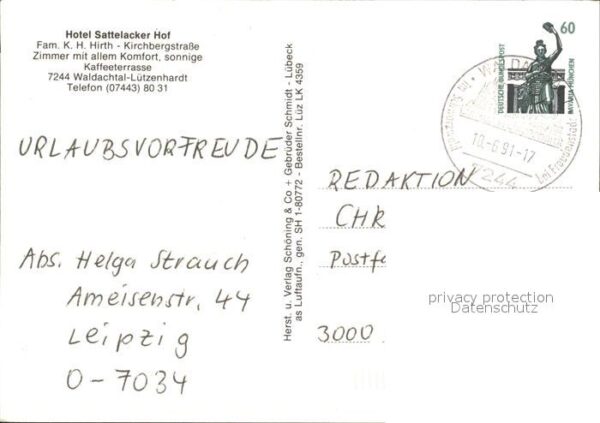 Hotel Sattelacker Hof
Fam. K. H. Hirth - Kirchbergstraße
Zimmer mit allem Komfort, sonnige
Kaffeeterrasse
7244 Waldachtal-Lützenhardt
Telefon (07443) 80 31
URLAUBSVORFREUDE
Abs. Helga Strauch
Ameisenstr. 44
Leipzig
O-7034
Herst. u. Verlag Schöning & Co + Gebrüder Schmidt - Lübeck
as Luftaufn., gen. SH 1-80772 - Bestellnr. Lüz LK 4359
60
DEUTSCHE BUNDESPOST
BAVARIA MÜNCHEN
WALDA
10.-6.91-17
7244
REDAKTION
CHR
Postfa
3000
privacy protection
Datenschutz